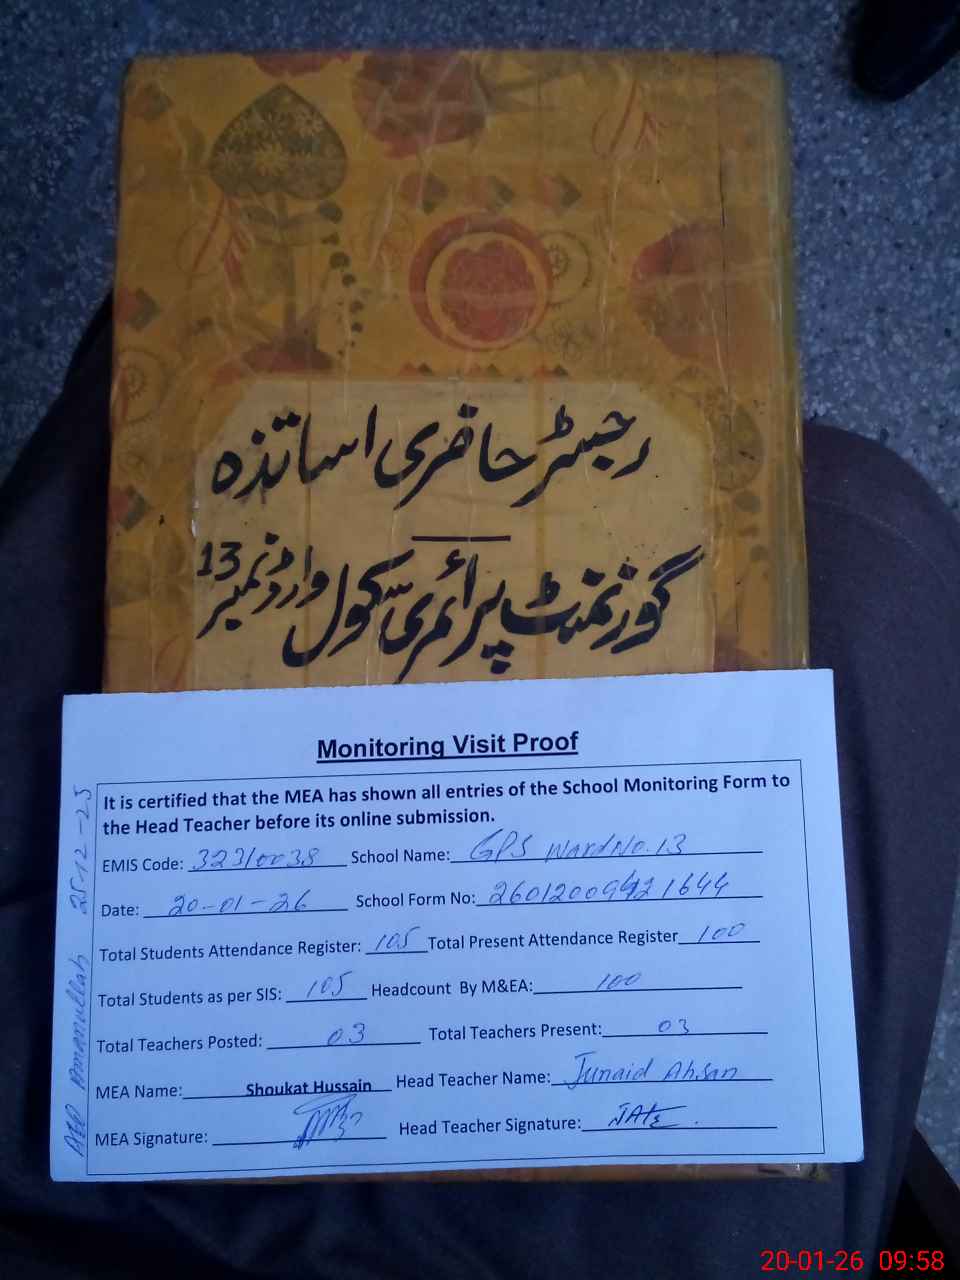 رجسٹر حاضری اساتذہ
گورنمنٹ پرائمری سکول وارڈ نمبر 13
Monitoring Visit Proof
It is certified that the MEA has shown all entries of the School Monitoring Form to
the Head Teacher before its online submission.
EMIS Code: 32310038 School Name: GPS Ward No. 13
Date: 20-01-26 School Form No:
Total Students Attendance Register: 105 Total Present Attendance Register 100
Total Students as per SIS: 105 Headcount By M&EA: 100
Total Teachers Posted: 03 Total Teachers Present: 03
MEA Name: Shoukat Hussain Head Teacher Name: Junaid Ahsan
MEA Signature: Head Teacher Signature:
AEO Amanullah 25-12-25
20-01-26 09:58